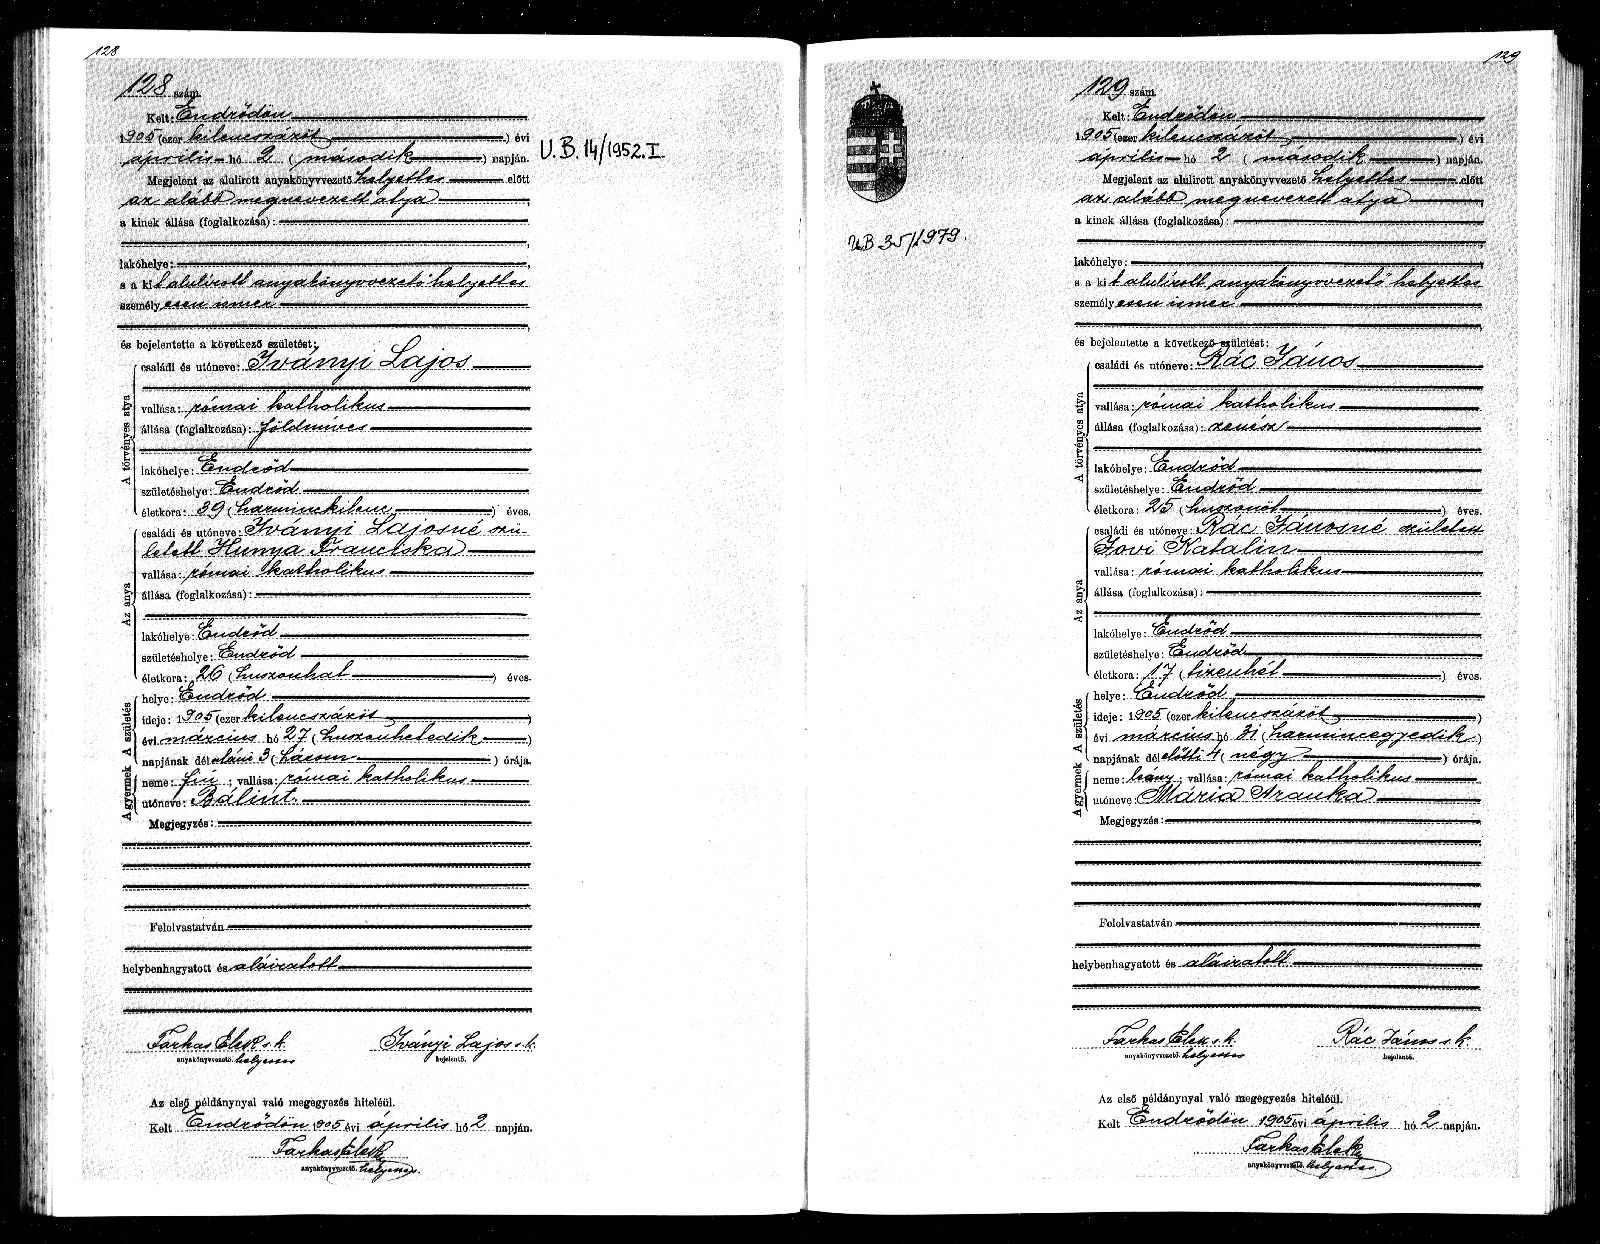 128
128 szám.
Kelt: Endrődön
1905 (ezer kilencszázöt) évi
április hó 2 (második) napján.
U.B. 14/1952.I.
Megjelent az alulirott anyakönyvvezető helyettes előtt
az alább megnevezett atya,
a kinek állása (foglalkozása):
lakóhelye:
s a kit alulírott anyakönyvvezető helyettes
személyesen ismer
és bejelentette a következő születést:
A törvényes atya
családi és utóneve: Iványi Lajos
vallása: római katholikus
állása (foglalkozása): földmíves
lakóhelye: Endrőd
születéshelye: Endrőd
életkora: 39 (harminckilenc) éves.
Az anya
családi és utóneve: Iványi Lajosné szü-
letett Hunya Franciska
vallása: római katholikus
állása (foglalkozása):
lakóhelye: Endrőd
születéshelye: Endrőd
életkora: 26 (huszonhat) éves.
A születés
helye: Endrőd
ideje: 1905 (ezer kilencszázöt)
évi március hó 27 (huszonhetedik)
napjának délutáni 3 (három) órája.
A gyermek
neme: fiú; vallása: római katholikus
utóneve: Bálint.
Megjegyzés:
Felolvastatván
helybenhagyatott és aláiratott
Farkas Elek s. k. Iványi Lajos s. k.
anyakönyvvezető. helyettes bejelentő.
Az első példánynyal való megegyezés hiteléül.
Kelt Endrődön 1905 évi április hó 2 napján.
Farkas Elek
anyakönyvvezető. helyettes
129
129 szám.
Kelt: Endrődön
1905 (ezer kilencszázöt) évi
április hó 2 (második) napján.
Megjelent az alulirott anyakönyvvezető helyettes előtt
az alább megnevezett atya,
a kinek állása (foglalkozása):
U.B 35/1979.
lakóhelye:
s a kit alulírott anyakönyvvezető helyettes
személyesen ismer
és bejelentette a következő születést:
A törvényes atya
családi és utóneve: Rác János
vallása: római katholikus
állása (foglalkozása): zenész
lakóhelye: Endrőd
születéshelye: Endrőd
életkora: 25 (huszonöt) éves.
Az anya
családi és utóneve: Rác Jánosné született
Jovi Katalin
vallása: római katholikus
állása (foglalkozása):
lakóhelye: Endrőd
születéshelye: Endrőd
életkora: 17 (tizenhét) éves.
A születés
helye: Endrőd
ideje: 1905 (ezer kilencszázöt)
évi március hó 31 (harmincegyedik)
napjának délelőtti 4 (négy) órája.
A gyermek
neme: leány; vallása: római katholikus
utóneve: Mária Aranka
Megjegyzés:
Felolvastatván
helybenhagyatott és aláiratott
Farkas Elek s. k. Rác János s. k.
anyakönyvvezető. helyettes bejelentő.
Az első példánynyal való megegyezés hiteléül.
Kelt Endrődön 1905 évi április hó 2 napján.
Farkas Elek
anyakönyvvezető. helyettes